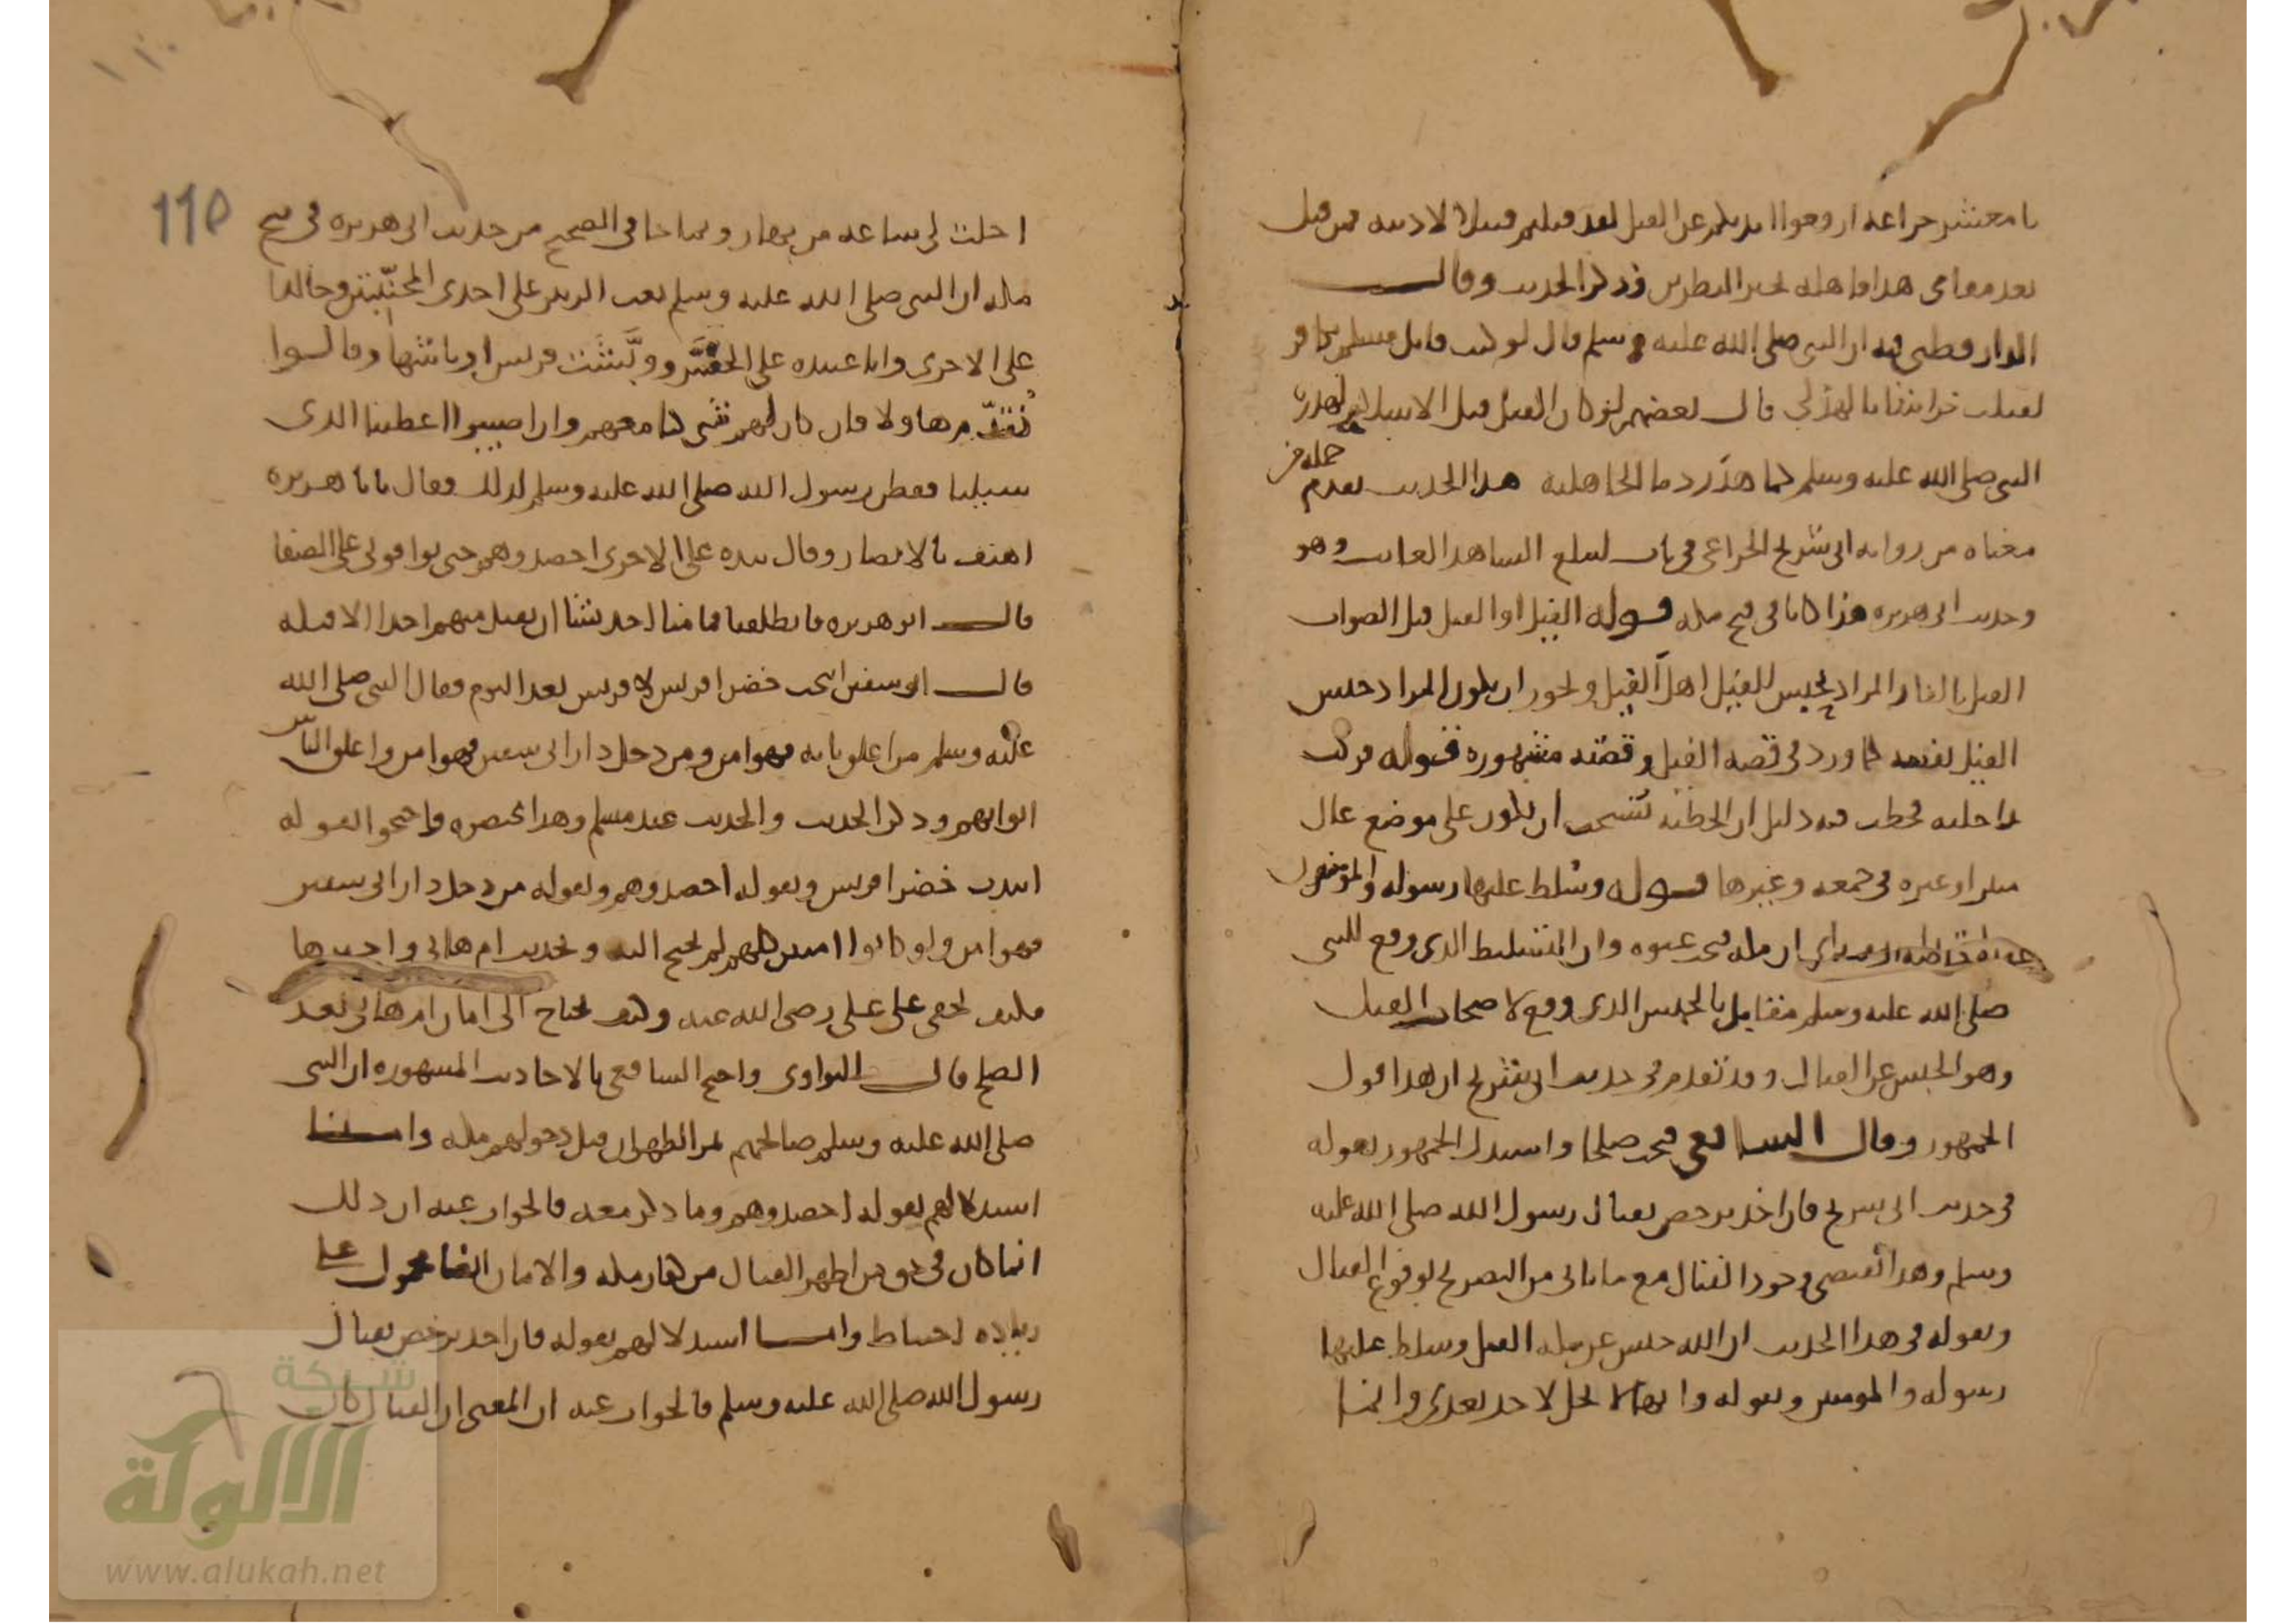 يا معشر خزاعة ارفعوا ايديكم عن القتل لقد قتلتم قتيلا لادينه فمن قتل
بعد مقامي هذا فاهله بخير النظرين وذكر الحديث وقال
الدارقطني فيه ان النبي صلى الله عليه وسلم قال لو كنت قاتل مسلم بكافر
لقتلت خراشا بالهذلي قال بعضهم لو كان القتل قبل الاسلام لهدره
النبي صلى الله عليه وسلم كما هدر دما الجاهلية هذا الحديث تقدم جملة من
معناه من رواية ابي شريح الخزاعي في باب ليبلغ الشاهد الغايب وهو
وحديث ابي هريرة هذا كانا في فتح مكه قوله الفيل او القتل قيل الصواب
الفيل بالفاء والمراد بحبس الفيل اهل الفيل ويجوز ان يكون المراد حبس
الفيل نفسه كما ورد في قصة الفيل وقصته مشهورة قوله فركب
راحلته فخطب فيه دليل ان الخطبة تستحب ان يكون على موضع عال
منبر او غيره في جمعه وغيرها قوله وسلط عليها رسوله والمؤمنون
ان مكه فتحت عنوه وان التسليط الذي وقع للنبي
صلى الله عليه وسلم مقابل بالحبس الذي وقع لاصحاب الفيل
وهو الحبس عن القتال وقد تقدم في حديث ابي شريح ان هذا قول
الجمهور وقال الشافعي فتحت صلحا واستدل الجمهور بقوله
في حديث ابي شريح فان احد ترخص بقتال رسول الله صلى الله عليه
وسلم وهذا يقتضي وجود القتال مع ما ياتي من التصريح بوقوع القتال
وبقوله في هذا الحديث ان الله حبس عن مكه الفيل وسلط عليها
رسوله والمومنين وبقوله وانها لا تحل لاحد بعدي وانما
115
احلت لي ساعة من نهار وبما جا في الصحيح من حديث ابي هريره في فتح
مكه ان النبي صلى الله عليه وسلم بعث الزبير على احدى المجنّبتين وخالدا
على الاخرى وابا عبيده على الحسّر ووبّشت قريش اوباشها وقالوا
نقدّم هاولا فان كان لهم شي كنا معهم وان اصيبوا اعطينا الذي
سيلنا ففطن رسول الله صلى الله عليه وسلم لذلك فقال يابا هريره
اهتف بالانصار وقال بيده على الاخرى احصدوهم حتى توافوني على الصفا
قال ابو هريره فانطلقنا فما منا احد يشا ان يقتل منهم احدا الا قتله
قال ابو سفين ابيحت خضرا قريش لا قريش بعد اليوم فقال النبي صلى الله
عليه وسلم من اغلق بابه فهو امن ومن دخل دار ابي سفين فهو امن واغلق الناس
ابوابهم وذكر الحديث والحديث عند مسلم وهذا مختصره فاحتجوا بقوله
ابيدت خضرا قريش وبقوله احصدوهم وبقوله من دخل دار ابي سفين
فهو امن ولو كانوا امنين كلهم لم يحتج اليه وبحديث ام هاني واجيرها
فكيف يخفى على علي رضي الله عنه وكيف يحتاج الى امان ام هاني بعد
الصلح قال النواوي واحتج الشافعي بالاحاديث المشهوره ان النبي
صلى الله عليه وسلم صالحهم بمر الظهران قبل دخولهم مكه واما
استدلالهم بقوله احصدوهم وما ذكر معه فالجواب عنه ان ذلك
انما كان في حق من اظهر القتال من كفار مكه والامان ايضا محمول على
زياده احتياط واما استدلالهم بقوله فان احد ترخص بقتال
رسول الله صلى الله عليه وسلم فالجواب عنه ان المعنى ان القتال كان
شبكة
الألوكة
www.alukah.net